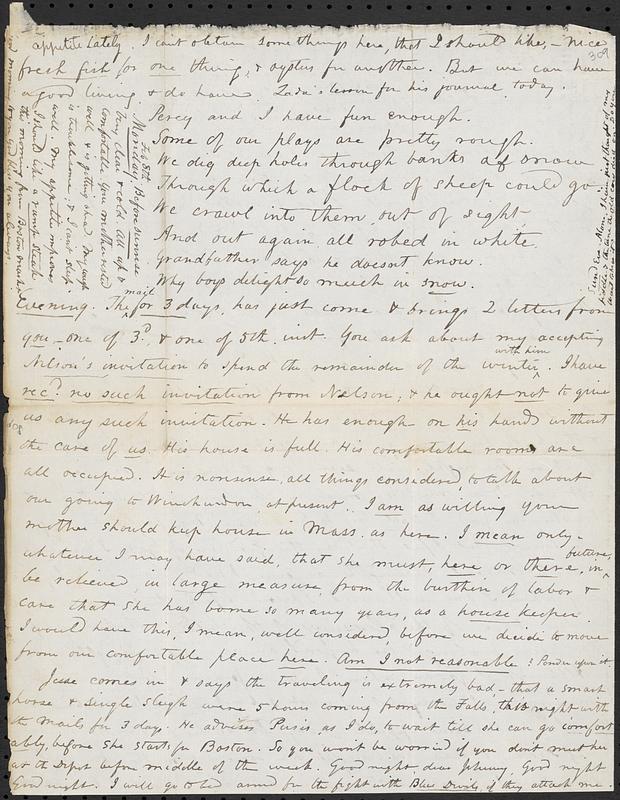 appetite lately. I cant obtain some things here, that I should like, - nice
fresh fish for one thing, & oysters for another. But we can have
a good living & do have. Zada's lesson for his journal today.
Percy and I have fun enough.
Some of our plays are pretty rough.
We dig deep holes through banks of snow
Through which a flock of sheep could go
We crawl into them out of sight
And out again all robed in white.
Grandfather says he doesnt know.
Why boys delight so much in snow.
Feb 8th
Monday Before sunrise
Very clear & cold. All up &
comfortable. Your mother rested
well & is getting
is troublesome, & I cant sleep
well. My appetite improves
I should like a rump steak
this morning from Boston market.
309
Evening. The mail for 3 days, has just come & brings 2 letters from
you - one of 3d, & one of 5th inst. You ask about my accepting
Nelson's invitation to spend the remainder of the winter with him. I have
recd no such invitation from Nelson, & he ought not to give
us any such invitation. He has enough on his hands without
the care of us. His house is full. His comfortable rooms are
all occupied. It is nonsense, all things considered, to talk about
our going to Winchendon at present. I am as willing your
mother should keep house in Mass. as here. I mean only -
whatever I may have said, that she must, here or there, in future,
be relieved in large measure, from the burthen of labor &
care that she has borne so many years, as a house keeper.
I would have this, I mean, well considered, before we decide to move
from our comfortable place here. Am I not reasonable? Ponder upon it
Jesse comes in & says the traveling is extremely bad - that a smart
horse & single sleigh were 5 hours coming from the Falls, this night with
the Mails for 3 days. He advises Pusis, as I do, to wait till she can go comfort
ably, before she starts for Boston. So you wont be worried if you dont meet her
at the Depot before middle of the week. Good night dear Johnny, Good night
Good night. I will go to bed armed for the fight with Blue Devils if they attack me